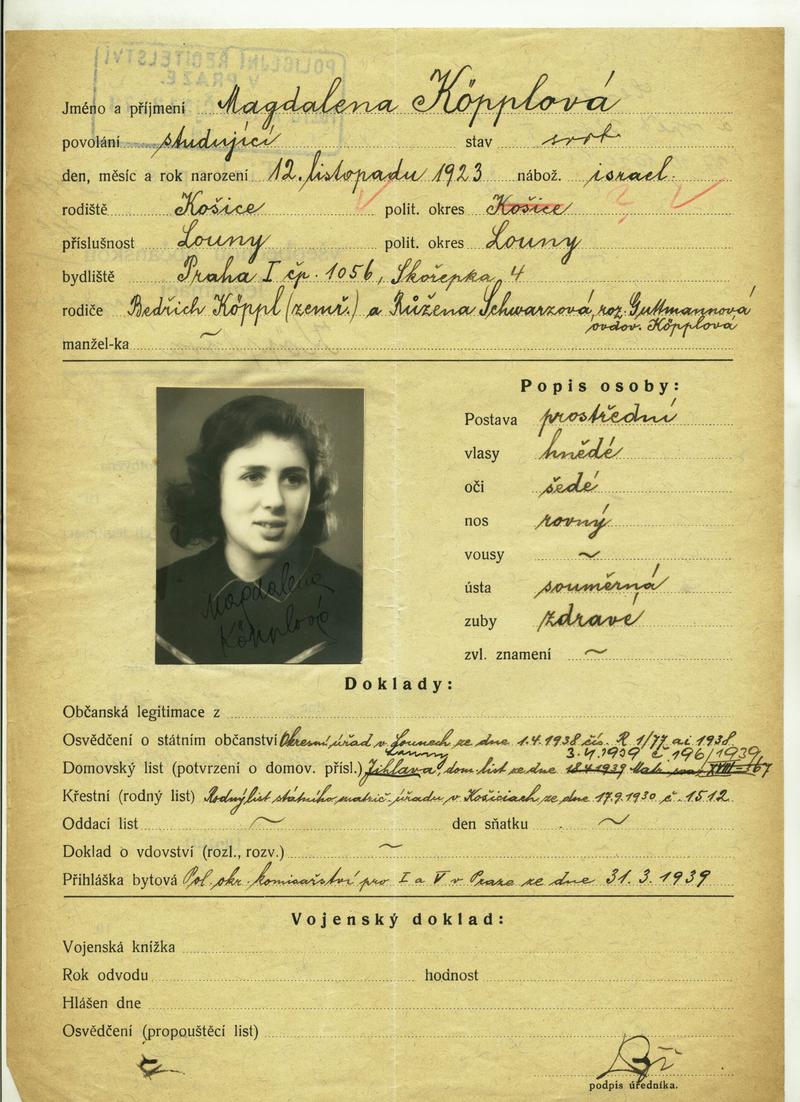 POLICEJNÍ ŘEDITELSTVÍ
V PRAZE.
Jméno a příjmení Magdalena Köpplová
povolání studující stav svob.
den, měsíc a rok narození 12. listopadu 1923 nábož. israel.
rodiště Košice polit. okres Košice ?
příslušnost Louny polit. okres Louny
bydliště Praha I čp. 1056, Skořepka 4
rodiče Bedřich Köppl (zemř.) a Růžena Schwarzová, roz. Guttmannová
ovdov. Köpplová
manžel-ka ~
Popis osoby:
Postava prostřední
vlasy hnědé
oči šedé
nos rovný
vousy ~
ústa souměrná
zuby zdravé
zvl. znamení ~
Magdalena
Köpplová
Doklady:
Občanská legitimace z
Osvědčení o státním občanství Okresní úřad v Lounech ze dne 1.4.1938 čís. R 1/77 ai 1938
Louny 3.V.1939 č. 196/1939
Domovský list (potvrzení o domov. přísl.) Jihlava, dom. list ze dne 18.4.1939
Křestní (rodný list) Rodný list státního matrič. úřadu v Košicích ze dne 17.9.1930 č. 1512
Oddací list ~ den sňatku ~
Doklad o vdovství (rozl., rozv.) ~
Přihláška bytová Pol. okr. komisařství pro I a V v Praze ze dne 31.3.1939
Vojenský doklad:
Vojenská knížka
Rok odvodu hodnost
Hlášen dne
Osvědčení (propouštěcí list)
podpis úředníka.